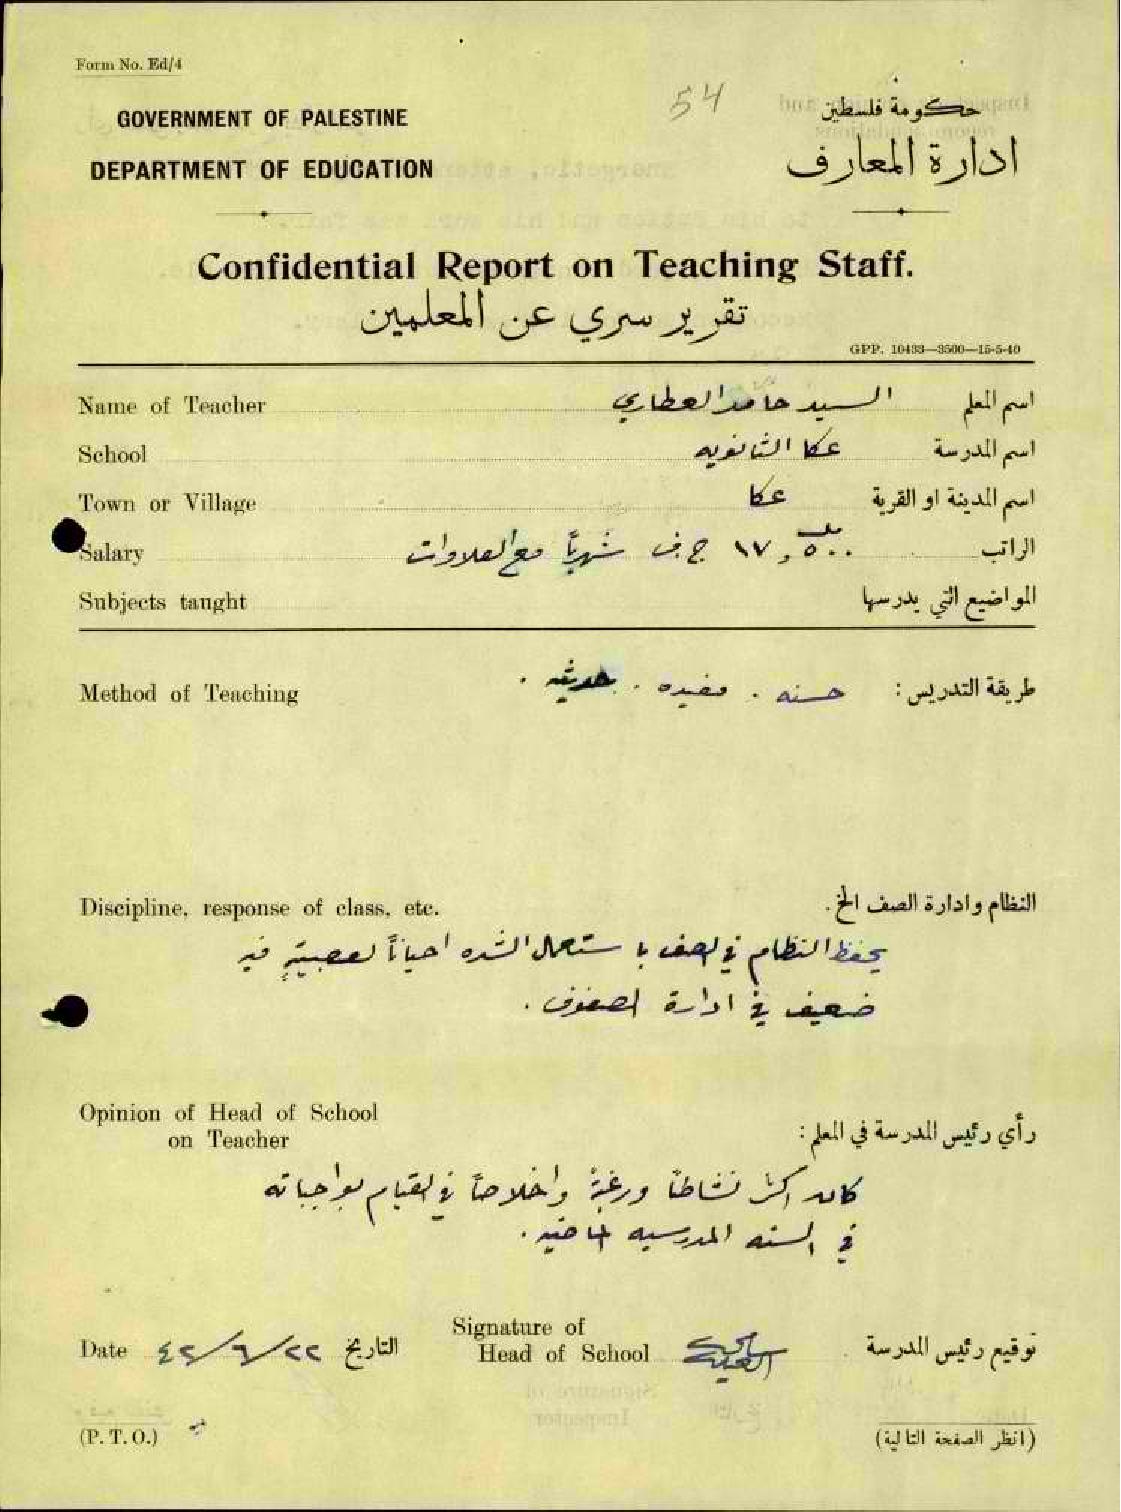 Form No. Ed/4
54
GOVERNMENT OF PALESTINE
حكومة فلسطين
DEPARTMENT OF EDUCATION
ادارة المعارف
Confidential Report on Teaching Staff.
تقرير سري عن المعلمين
GPP. 10433—3500—15-5-40
Name of Teacher السيد حامد العطاري اسم المعلم
School عكا الثانويه اسم المدرسة
Town or Village عكا اسم المدينة او القرية
Salary ٥٠٠ر١٧ ج.ف شهريًا مع العلاوات الراتب
Subjects taught المواضيع التي يدرسها
Method of Teaching طريقة التدريس: حسنه . مفيده . حديثه .
Discipline, response of class, etc. النظام وادارة الصف الخ.
يحفظ النظام في الصف باستعمال الشده احياناً لعصبيةٍ فيه
ضعيف في ادارة الصفوف .
Opinion of Head of School
on Teacher
رأي رئيس المدرسة في المعلم:
كان اكثر نشاطاً ورغبةً واخلاصاً في القيام بواجباته
في السنه المدرسيه الماضيه .
Signature of
Date ٤٢/٦/٢٢ التاريخ Head of School توقيع رئيس المدرسة
(P. T. O.) (انظر الصفحة التالية)